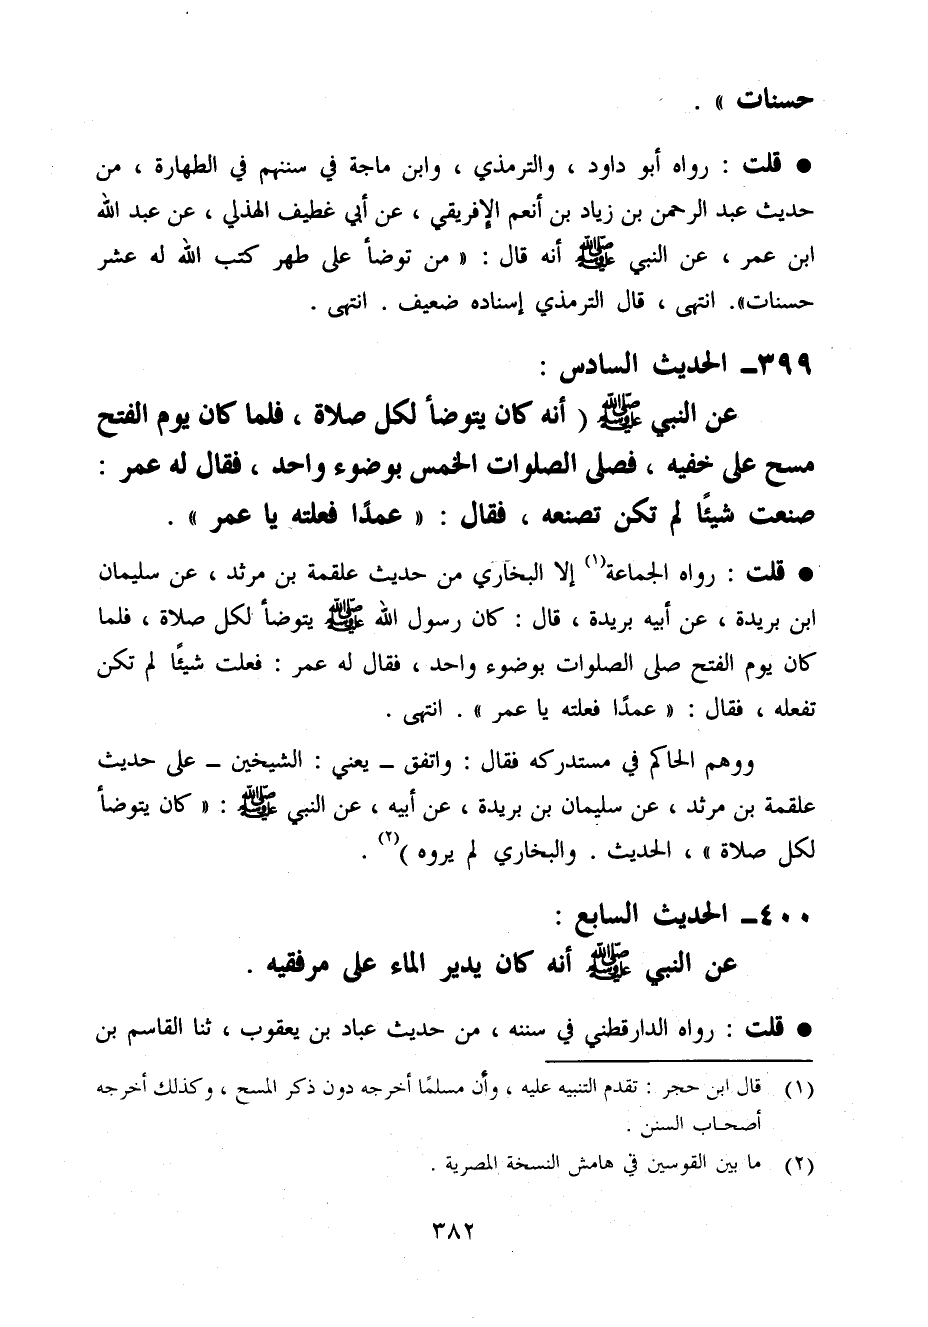 حسنات » .
● قلت : رواه أبو داود ، والترمذي ، وابن ماجة في سننهم في الطهارة ، من
حديث عبد الرحمن بن زياد بن أنعم الإفريقي ، عن أبي غطيف الهذلي ، عن عبد الله
ابن عمر ، عن النبي ﷺ أنه قال : « من توضأ على طهر كتب الله له عشر
حسنات». انتهى ، قال الترمذي إسناده ضعيف . انتهى .
٣٩٩ـ الحديث السادس :
عن النبي ﷺ ( أنه كان يتوضأ لكل صلاة ، فلما كان يوم الفتح
مسح على خفيه ، فصلى الصلوات الخمس بوضوء واحد ، فقال له عمر :
صنعت شيئًا لم تكن تصنعه ، فقال : « عمدًا فعلته يا عمر » .
● قلت : رواه الجماعة(١) إلا البخاري من حديث علقمة بن مرثد ، عن سليمان
ابن بريدة ، عن أبيه بريدة ، قال : كان رسول الله ﷺ يتوضأ لكل صلاة ، فلما
كان يوم الفتح صلى الصلوات بوضوء واحد ، فقال له عمر : فعلت شيئًا لم تكن
تفعله ، فقال : « عمدًا فعلته يا عمر » . انتهى .
ووهم الحاكم في مستدركه فقال : واتفق ـ يعني : الشيخين ـ على حديث
علقمة بن مرثد ، عن سليمان بن بريدة ، عن أبيه ، عن النبي ﷺ : « كان يتوضأ
لكل صلاة » ، الحديث . والبخاري لم يروه )(٢) .
٤٠٠ـ الحديث السابع :
عن النبي ﷺ أنه كان يدير الماء على مرفقيه .
● قلت : رواه الدارقطني في سننه ، من حديث عباد بن يعقوب ، ثنا القاسم بن
(١) قال ابن حجر : تقدم التنبيه عليه ، وأن مسلمًا أخرجه دون ذكر المسح ، وكذلك أخرجه
أصحاب السنن .
(٢) ما بين القوسين في هامش النسخة المصرية .
٣٨٢